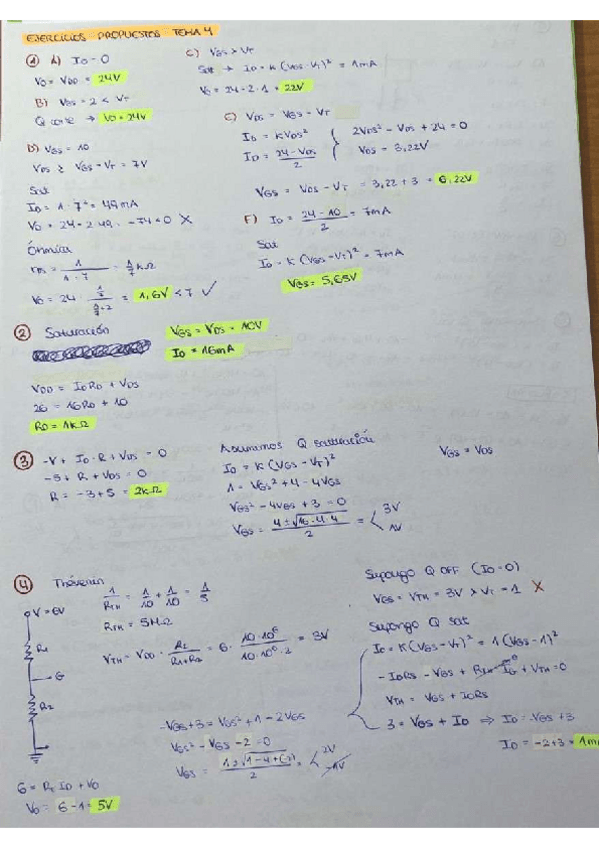 EJERCICIOS PROPUESTOS TEMA 4
① A) ID = 0
VO = VDD = 24V
B) VGS = 2 < VT
Q corte → VO = 24V
C) VGS > VT
Sat → ID = K (VGS - VT)² = 1mA
VO = 24 - 2 · 1 = 22V
D) VGS = 10
VDS ≥ VGS - VT = 7V
Sat
ID = 1 · 7² = 49mA
VO = 24 - 2 · 49 = -74 < 0 X
Óhmica
rDS = 1 / 1 · 7 = 1/7 kΩ
VO = 24 · = 1,6V < 7 ✓
VDS = VGS - VT
ID = K VDS²
ID = 24 - VDS / 2
2VDS² - VDS + 24 = 0
VDS = 3,22V
VGS = VDS - VT = 3,22 + 3 = 6,22V
F) ID = 24 - 10 / 2 = 7mA
Sat
ID = K (VGS - VT)² = 7mA
VGS = 5,65V
② Saturación
VGS = VDS = 10V
ID = 16mA
VDD = ID RD + VDS
26 = 16RD + 10
RD = 1KΩ
③ -V + ID · R + VDS = 0
-5 + R + VDS = 0
R = -3 + 5 = 2kΩ
Asumimos Q saturación
ID = K (VGS - VT)²
1 = VGS² + 4 - 4VGS
VGS² - 4VGS + 3 = 0
VGS = 4 ± √16 - 4 · / 2 = 3V
1V
VGS = VDS
④ Thévenin
V = 6V
R1
G
R2
1/RTH = 1/10 + 1/10 = 1/5
RTH = 5MΩ
VTH = VDD · R2 / R1+R2 = 6 · 10·10⁶ / 10·10⁶·2 = 3V
Supongo Q OFF (ID = 0)
VGS = VTH = 3V > VT = 1 X
Supongo Q sat
ID = K (VGS - VT)² = 1 (VGS - 1)²
-IDRS - VGS + RTH IG + VTH = 0
VTH = VGS + IDRS
3 = VGS + ID ⇒ ID = -VGS + 3
ID = -2 + 3 = 1m
-VGS + 3 = VGS² + 1 - 2VGS
VGS² - VGS - 2 = 0
VGS = 1 ± √1 - 4 · / 2 = 2V
-1V
6 = R1 ID + VO
VO = 6 - 1 = 5V